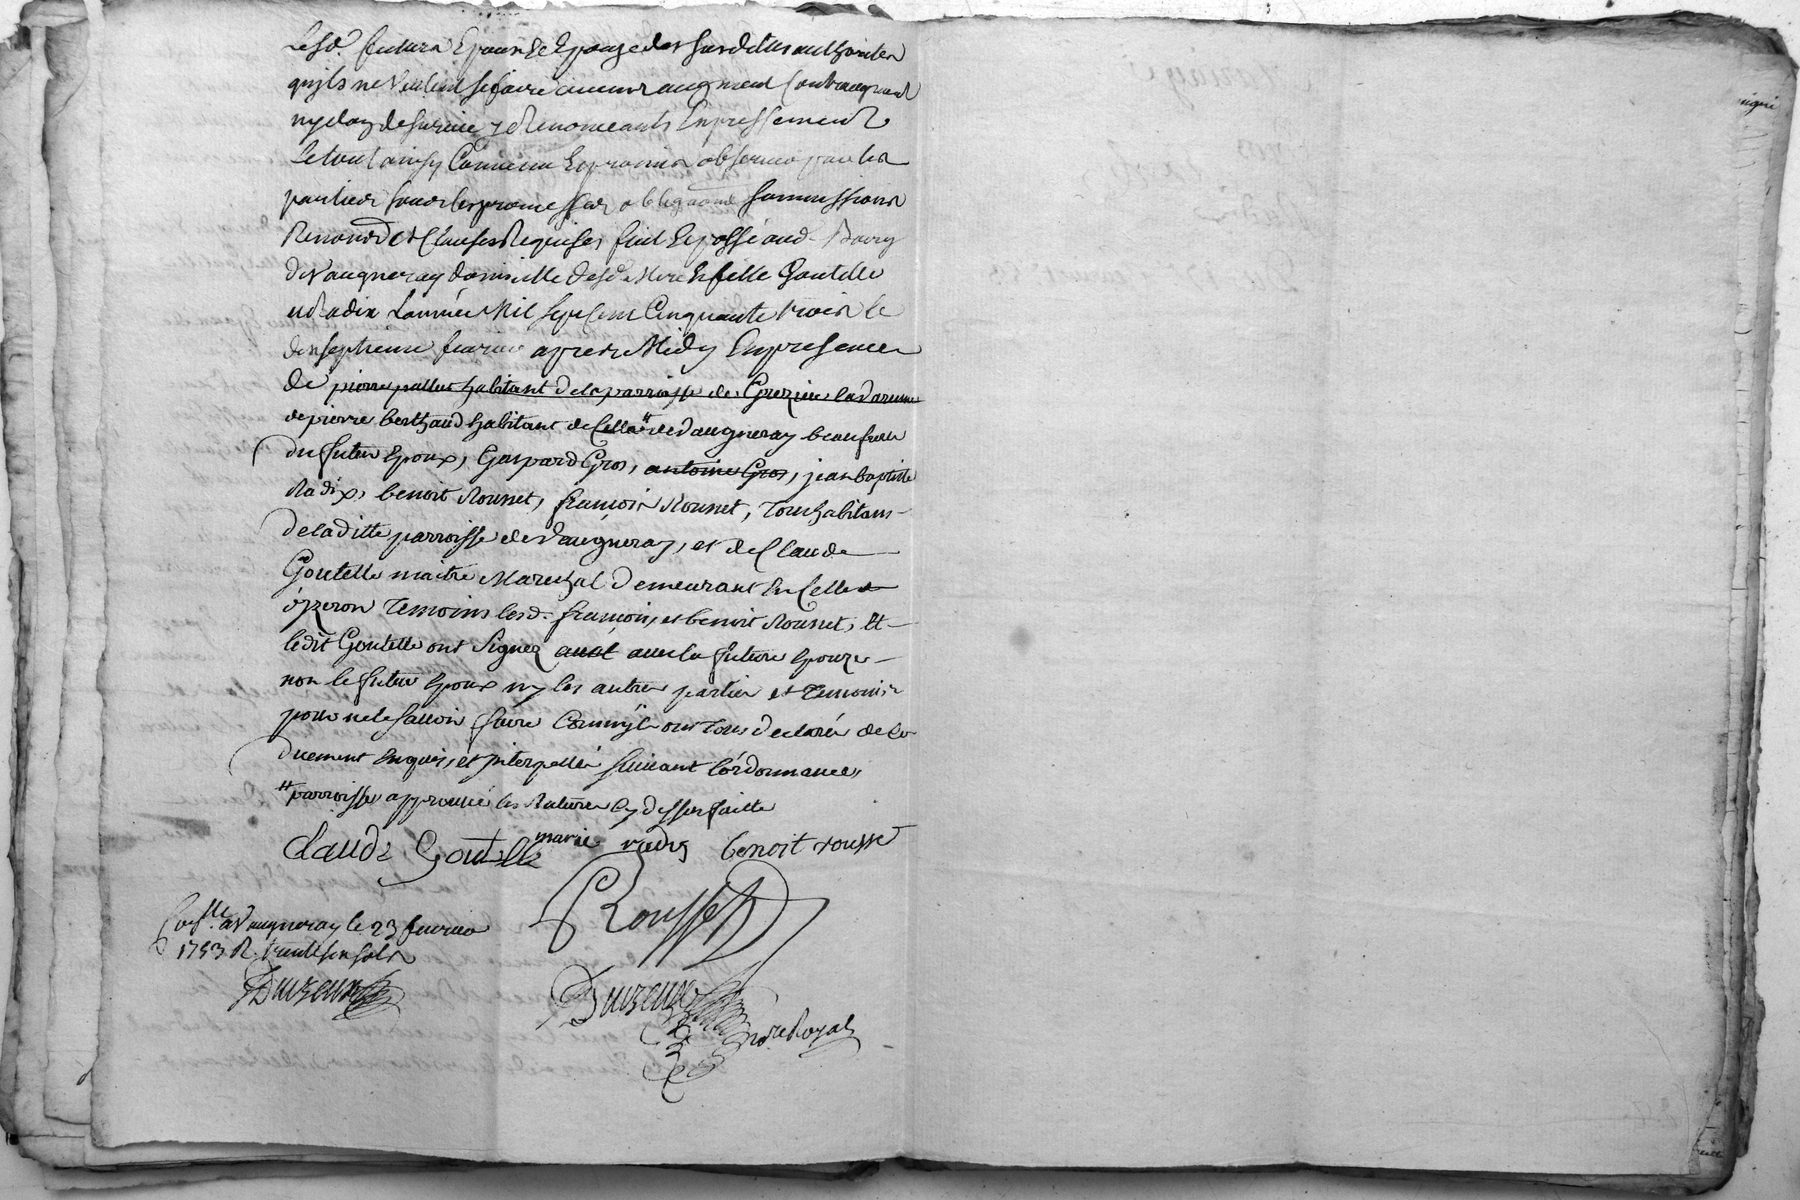 Lesd. futurs Epoux Et Epouze des susdittes authorités
quils ne veulent se faire aucun augment Contraugment
ny don de survie y Renonceants Expressement
Le tout ainsy Convenu Et promis observer par les
parties sous les promesses obligaons soummissions
Renonds et Clauses Requises fait Et passé aud. Bourg
de Vaugneray domicille desd. Mere Et fille Goutelle
et Radix L'année Mil Sept Cent Cinquante trois le
dixseptieme fevrier apres Midy En presence
de pierre pallue habitant de la parroisse de Grezieu la Varenne
de pierre berthaud habitant de Celle # de Vaugneray beaufrere
du futur Epoux, Gaspard Gros, antoine Gros, jean baptiste
Radix, benoit Rousset, françois Rousset, Tous habitans
de laditte parroisse de Vaugneray, et de Claude
Goutelle maitre Marechal demeurant En Celle
d'yzeron Temoins lesd. françois, et benoit Rousset, Et
ledit Goutelle ont Signez avec la future Epouze
non le futur Epoux ny les autres parties et Temoins
pour ne le sçavoir faire Comm'ils ont Tous declarés de ce
duement Enquis, et jnterpellés suivant l'ordonnance,
# parroisse approuvé les Ratures Cy dessus faitte
Claude Goutelle marie radix benoit rousset
Rousset
Conslle. a Vaugneray le 23 fevrier
1753 R. trente six sols
nore Royal